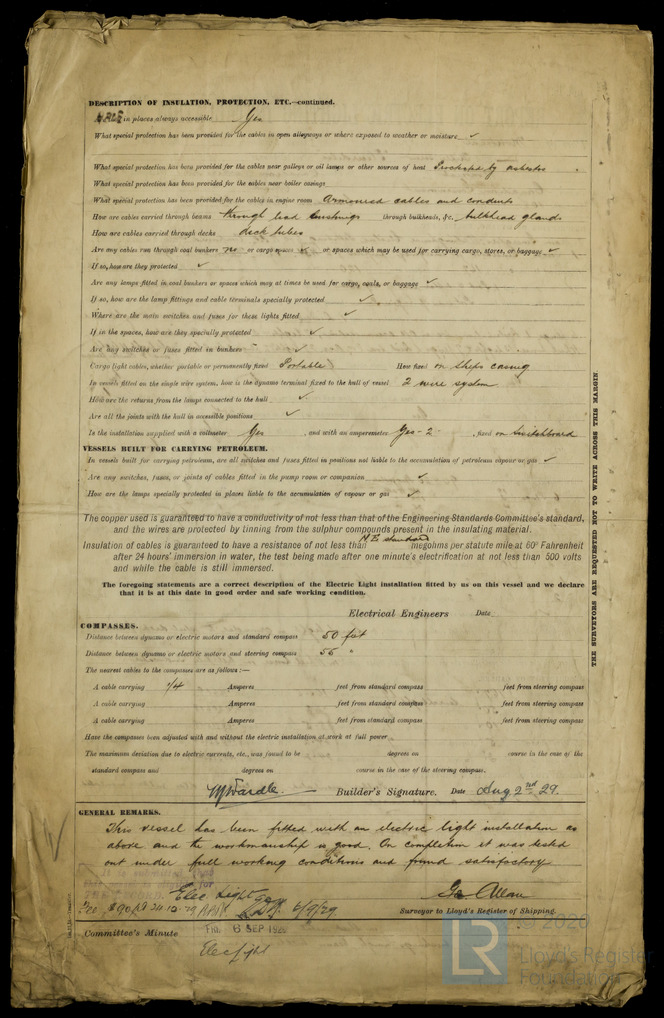 DESCRIPTION OF INSULATION, PROTECTION, ETC.—continued.
in places always accessible Yes
What special protection has been provided for the cables in open alleyways or where exposed to weather or moisture ✓
What special protection has been provided for the cables near galleys or oil lamps or other sources of heat Protected by asbestos
What special protection has been provided for the cables near boiler casings
What special protection has been provided for the cables in engine room Armoured cables and conduits
How are cables carried through beams through lead bushings through bulkheads, &c. bulkhead glands
How are cables carried through decks deck tubes
Are any cables run through coal bunkers no or cargo spaces ✓ or spaces which may be used for carrying cargo, stores, or baggage ✓
If so, how are they protected ✓
Are any lamps fitted in coal bunkers or spaces which may at times be used for cargo, coals, or baggage ✓
If so, how are the lamp fittings and cable terminals specially protected ✓
Where are the main switches and fuses for these lights fitted ✓
If in the spaces, how are they specially protected ✓
Are any switches or fuses fitted in bunkers ✓
Cargo light cables, whether portable or permanently fixed Portable How fixed on ships casing
In vessels fitted on the single wire system, how is the dynamo terminal fixed to the hull of vessel 2 wire system
How are the returns from the lamps connected to the hull ✓
Are all the joints with the hull in accessible positions ✓
Is the installation supplied with a voltmeter Yes , and with an amperemeter Yes - 2 , fixed on Switchboard
VESSELS BUILT FOR CARRYING PETROLEUM.
In vessels built for carrying petroleum, are all switches and fuses fitted in positions not liable to the accumulation of petroleum vapour or gas ✓
Are any switches, fuses, or joints of cables fitted in the pump room or companion ✓
How are the lamps specially protected in places liable to the accumulation of vapour or gas ✓
The copper used is guaranteed to have a conductivity of not less than that of the Engineering Standards Committee's standard,
and the wires are protected by tinning from the sulphur compounds present in the insulating material.
Insulation of cables is guaranteed to have a resistance of not less than megohms per statute mile at 60° Fahrenheit
after 24 hours' immersion in water, the test being made after one minute's electrification at not less than 500 volts
and while the cable is still immersed.
The foregoing statements are a correct description of the Electric Light installation fitted by us on this vessel and we declare
that it is at this date in good order and safe working condition.
Electrical Engineers Date
COMPASSES.
Distance between dynamo or electric motors and standard compass 50 feet
Distance between dynamo or electric motors and steering compass 55 "
The nearest cables to the compasses are as follows:—
A cable carrying 1/4 Amperes feet from standard compass feet from steering compass
A cable carrying Amperes feet from standard compass feet from steering compass
A cable carrying Amperes feet from standard compass feet from steering compass
Have the compasses been adjusted with and without the electric installation at work at full power
The maximum deviation due to electric currents, etc., was found to be degrees on course in the case of the
standard compass and degrees on course in the case of the steering compass.
Wardle Builder's Signature. Date Aug 2nd 29.
GENERAL REMARKS.
This vessel has been fitted with an electric light installation as
above and the workmanship is good. On completion it was tested
out under full working conditions and found satisfactory
Elec Light
6/9/29
Geo Allan
Surveyor to Lloyd's Register of Shipping.
Committee's Minute FRI. 6 SEP 1929
Elec Light
THE SURVEYORS ARE REQUESTED NOT TO WRITE ACROSS THIS MARGIN.
© 2020
LR
Lloyd's Register
Foundation